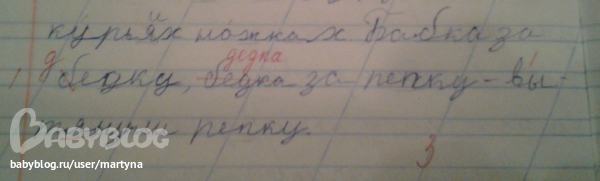 курьях ножках. Бабка за
д дедка
бедку, бедка за репку – вы-
репку.
3
BABYBLOG
babyblog.ru/user/martyna